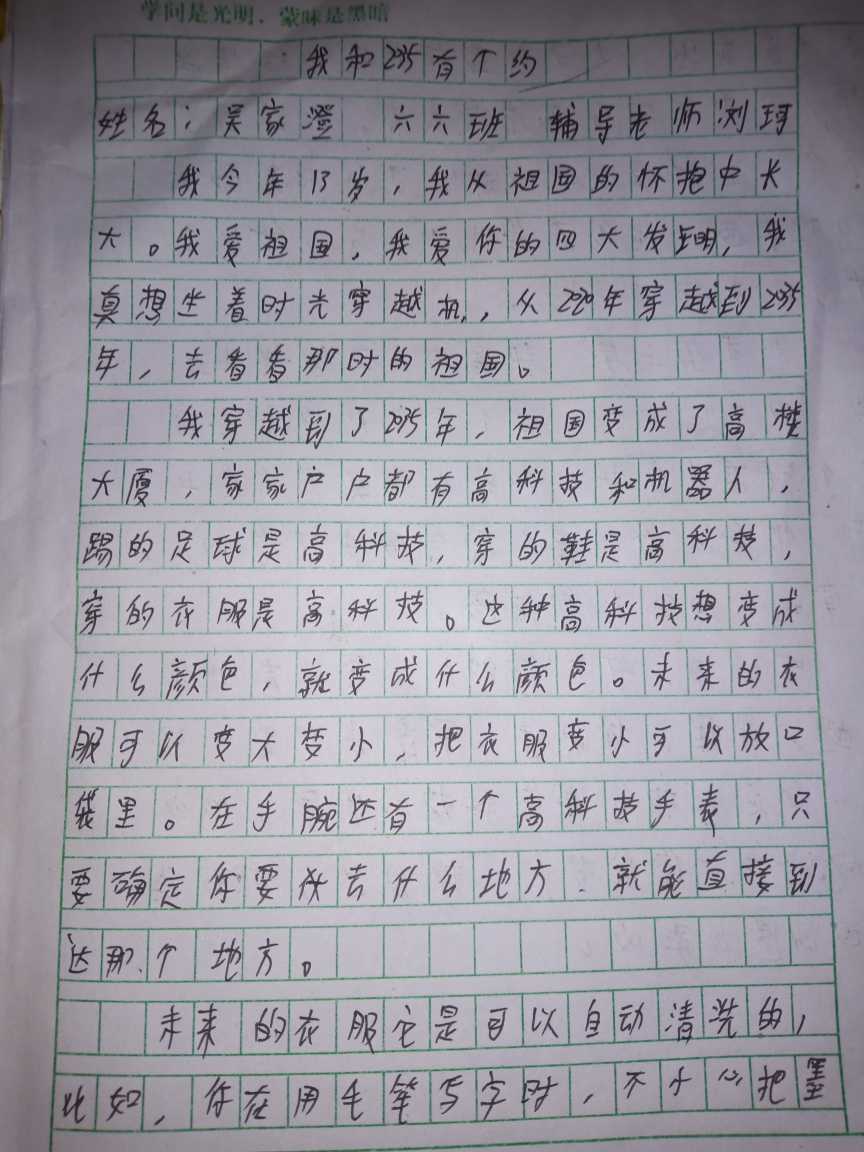 学问是光明，蒙昧是黑暗
我和2035有个约
姓名：吴家澄 六六班 辅导老师浏珂
我今年13岁，我从祖国的怀抱中长
大。我爱祖国，我爱你的四大发明，我
真想坐着时光穿越机，从2020年穿越到2035
年，去看看那时的祖国。
我穿越到了2035年，祖国变成了高楼
大厦，家家户户都有高科技和机器人，
踢的足球是高科技，穿的鞋是高科技，
穿的衣服是高科技。这种高科技想变成
什么颜色，就变成什么颜色。未来的衣
服可以变大变小，把衣服变小可以放口
袋里。在手腕还有一个高科技手表，只
要确定你要去什么地方．就能直接到
达那个地方。
未来的衣服它是可以自动清洗的，
比如，你在用毛笔写字时，不小心把墨